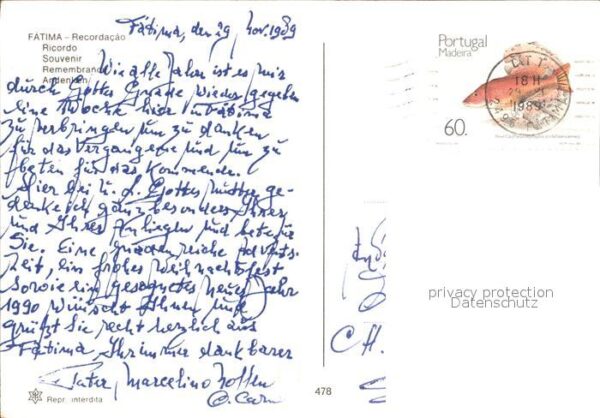 Fátima, den 29. Nov. 1989
FÁTIMA – Recordação
Ricordo
Souvenir
Remembrance
Andenken
Wie alle Jahre ist es mir
durch Gottes Gnade wieder gegeben
eine Woche hier in Fátima
zu verbringen um zu danken
für das Vergangene und um zu
beten für das Kommende.
Hier bei U. L. Gottes Mutter ge-
denke ich ganz besonders Ihrer
und Ihrer Anliegen und bete für
Sie. Eine gnadenreiche Advents-
zeit, ein frohes Weihnachtsfest
sowie ein gesegnetes neues Jahr
1990 wünscht Ihnen und
grüßt Sie recht herzlich aus
Fátima Ihr immer dankbarer
Pater Marcelino
Repr. interdita
478
Portugal
Madeira
60.
18 H
1989
CH.
privacy protection
Datenschutz